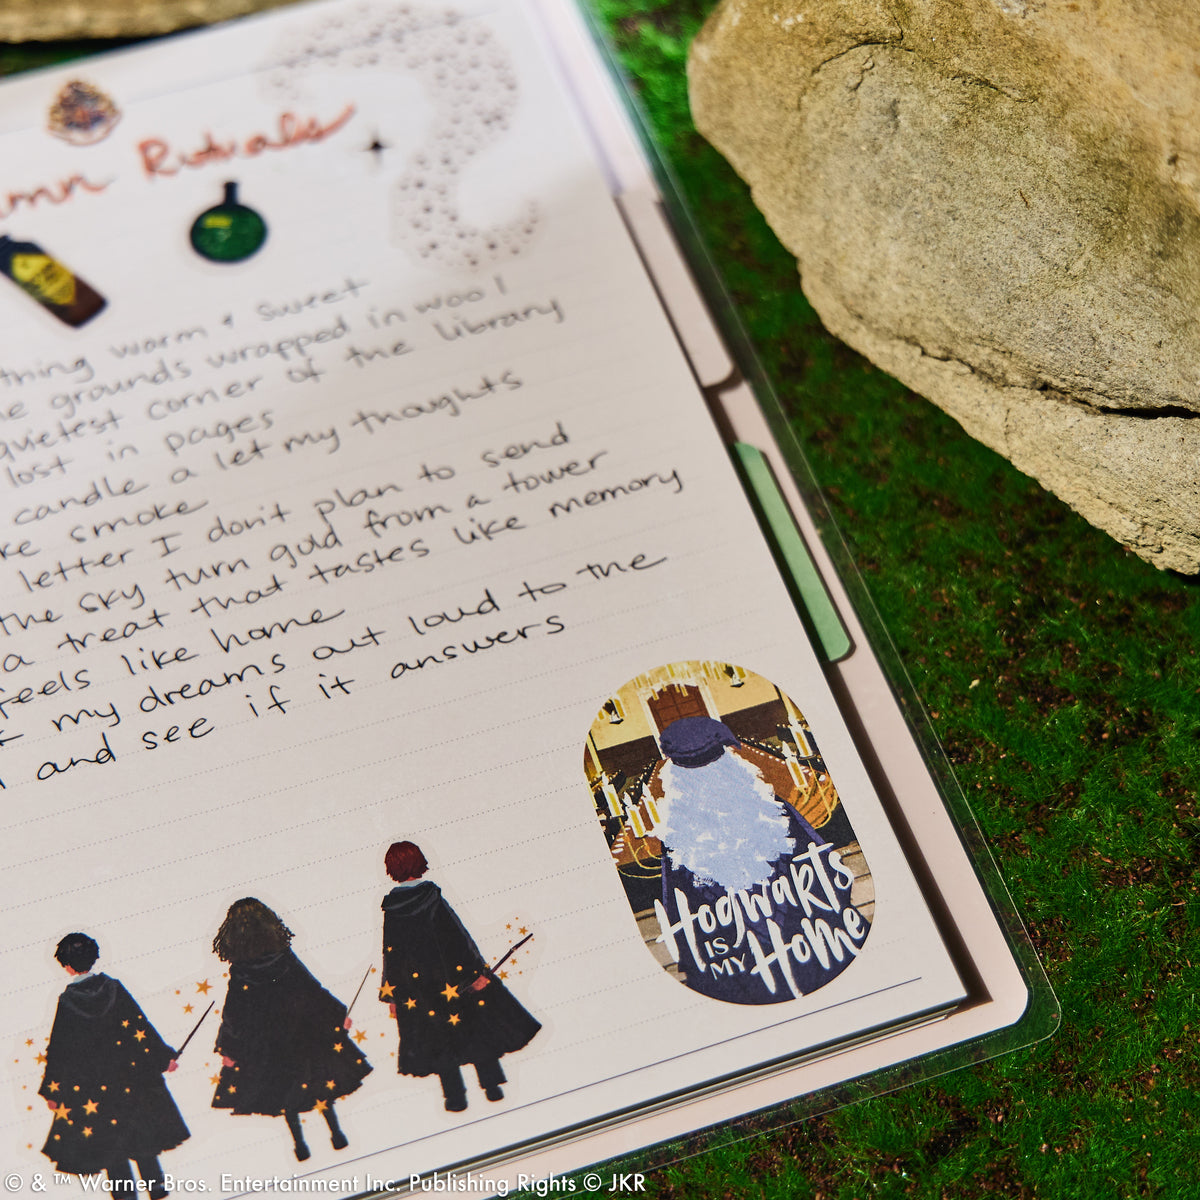 Rituals
warm & sweet
grounds wrapped in wool
quietest corner of the library
lost in pages
candle & let my thoughts
smoke
letter I don't plan to send
the sky turn gold from a tower
a treat that tastes like memory
feels like home
my dreams out loud to the
and see if it answers
Hogwarts
is
my
Home
© & ™ Warner Bros. Entertainment Inc. Publishing Rights © JKR